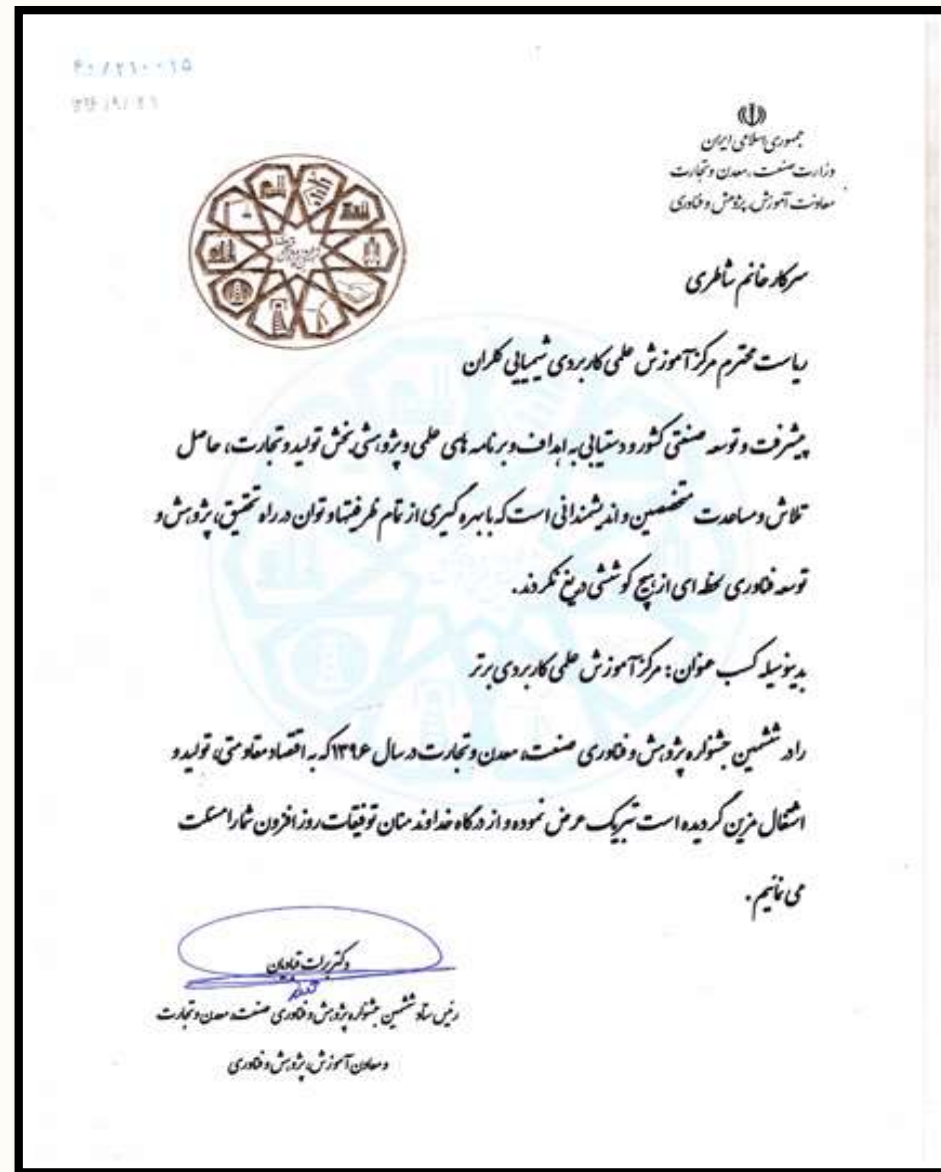 ۴۰/۲۱۰۰۱۵
جمهوری اسلامی ایران
وزارت صنعت، معدن و تجارت
معاونت آموزش، پژوهش و فناوری
سرکار خانم شاطری
ریاست محترم مرکز آموزش علمی کاربردی شیمیایی کلران
پیشرفت و توسعه صنعتی کشور و دستیابی به اهداف و برنامه های علمی و پژوهشی بخش تولید و تجارت، حاصل
تلاش و مساعدت متخصصین و اندیشمندانی است که با بهره گیری از تمام ظرفیتها و توان در راه تحقیق، پژوهش و
توسعه فناوری لحظه ای از هیچ کوششی دریغ نکردند.
بدینوسیله کسب عنوان: مرکز آموزش علمی کاربردی برتر
را در ششمین جشنواره پژوهش و فناوری صنعت، معدن و تجارت در سال ۱۳۹۶ که به اقتصاد مقاومتی، تولید و
اشتغال مزین گردیده است تبریک عرض نموده و از درگاه خداوند منان توفیقات روز افزون شما را مسئلت
می نمائیم.
دکتر برات قبادیان
رئیس ستاد ششمین جشنواره پژوهش و فناوری صنعت، معدن و تجارت
و معاون آموزش، پژوهش و فناوری